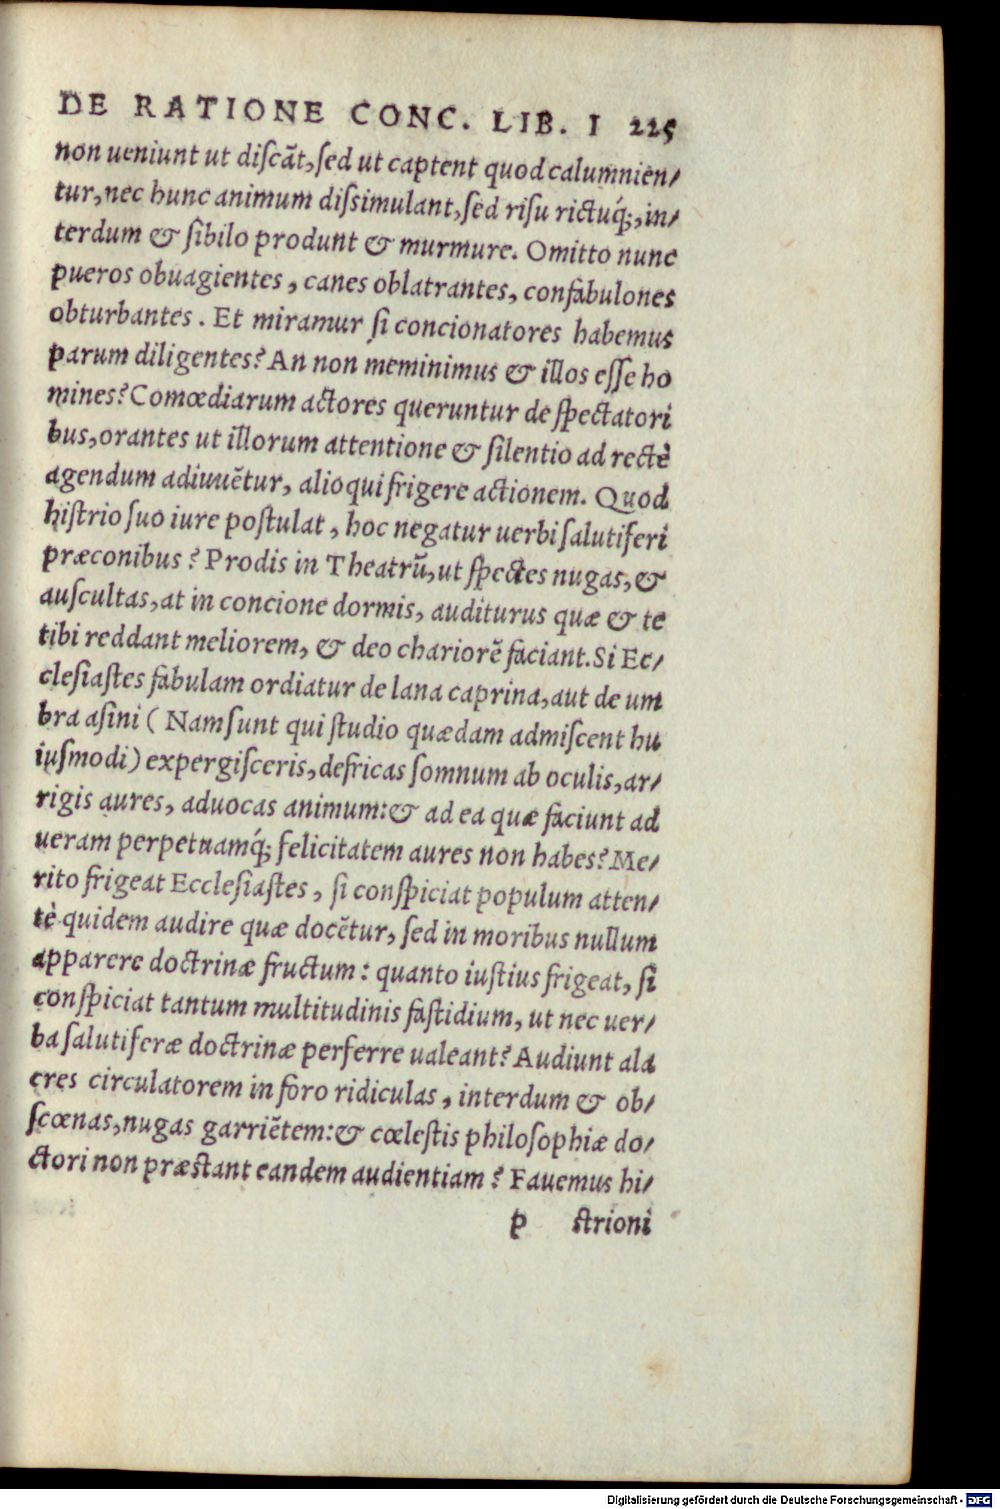 DE RATIONE CONC. LIB. I 225
non ueniunt ut discāt, sed ut captent quod calumnien/
tur, nec hunc animum dissimulant, sed risu rictuq́;, in/
terdum & sibilo produnt & murmure. Omitto nunc
pueros obuagientes, canes oblatrantes, confabulones
obturbantes. Et miramur si concionatores habemus
parum diligentes? An non meminimus & illos esse ho
mines? Comœdiarum actores queruntur de spectatori
bus, orantes ut illorum attentione & silentio ad rectè
agendum adiuuētur, alioqui frigere actionem. Quod
histrio suo iure postulat, hoc negatur uerbi salutiferi
præconibus? Prodis in Theatrū, ut spectes nugas, &
auscultas, at in concione dormis, auditurus quæ & te
tibi reddant meliorem, & deo chariorē faciant. Si Ec/
clesiastes fabulam ordiatur de lana caprina, aut de um
bra asini ( Nam sunt qui studio quædam admiscent hu
iusmodi) expergisceris, defricas somnum ab oculis, ar/
rigis aures, aduocas animum: & ad ea quæ faciunt ad
ueram perpetuamq́; felicitatem aures non habes? Me/
rito frigeat Ecclesiastes, si conspiciat populum atten/
tè quidem audire quæ docētur, sed in moribus nullum
apparere doctrinæ fructum: quanto iustius frigeat, si
conspiciat tantum multitudinis fastidium, ut nec uer/
ba salutiferæ doctrinæ perferre ualeant? Audiunt ala
cres circulatorem in foro ridiculas, interdum & ob/
scœnas, nugas garriētem: & cœlestis philosophiæ do/
ctori non præstant eandem audientiam? Fauemus hi/
p strioni
Digitalisierung gefördert durch die Deutsche Forschungsgemeinschaft - DFG